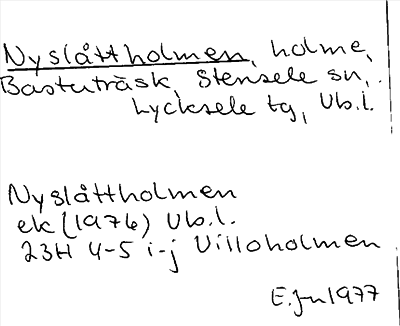 Nyslåttholmen, holme,
Bastuträsk, Stensele sn,
Lycksele tg, Vb.l.
Nyslåttholmen
ek (1976) Vb.l.
23H 4-5 i-j Villoholmen
E.Jn 1977